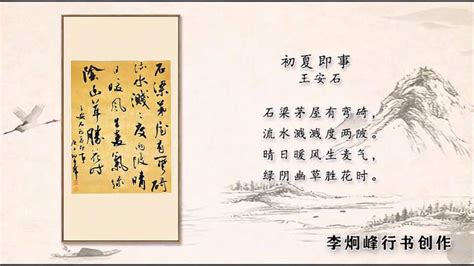 初夏即事
王安石
石梁茅屋有弯碕，
流水溅溅度两陂。
晴日暖风生麦气，
绿阴幽草胜花时。
李炯峰行书创作
石梁茅屋有弯碕
流水溅溅度两陂晴
日暖风生麦气绿
阴幽草胜花时